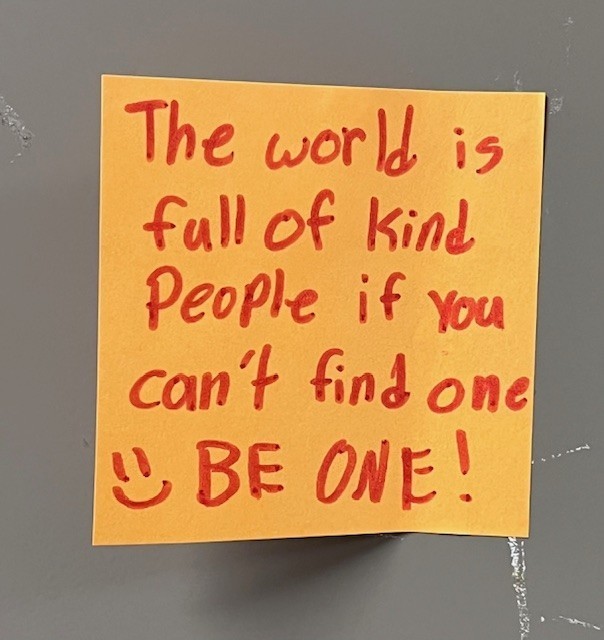 The world is
full of kind
People if you
can't find one
BE ONE!